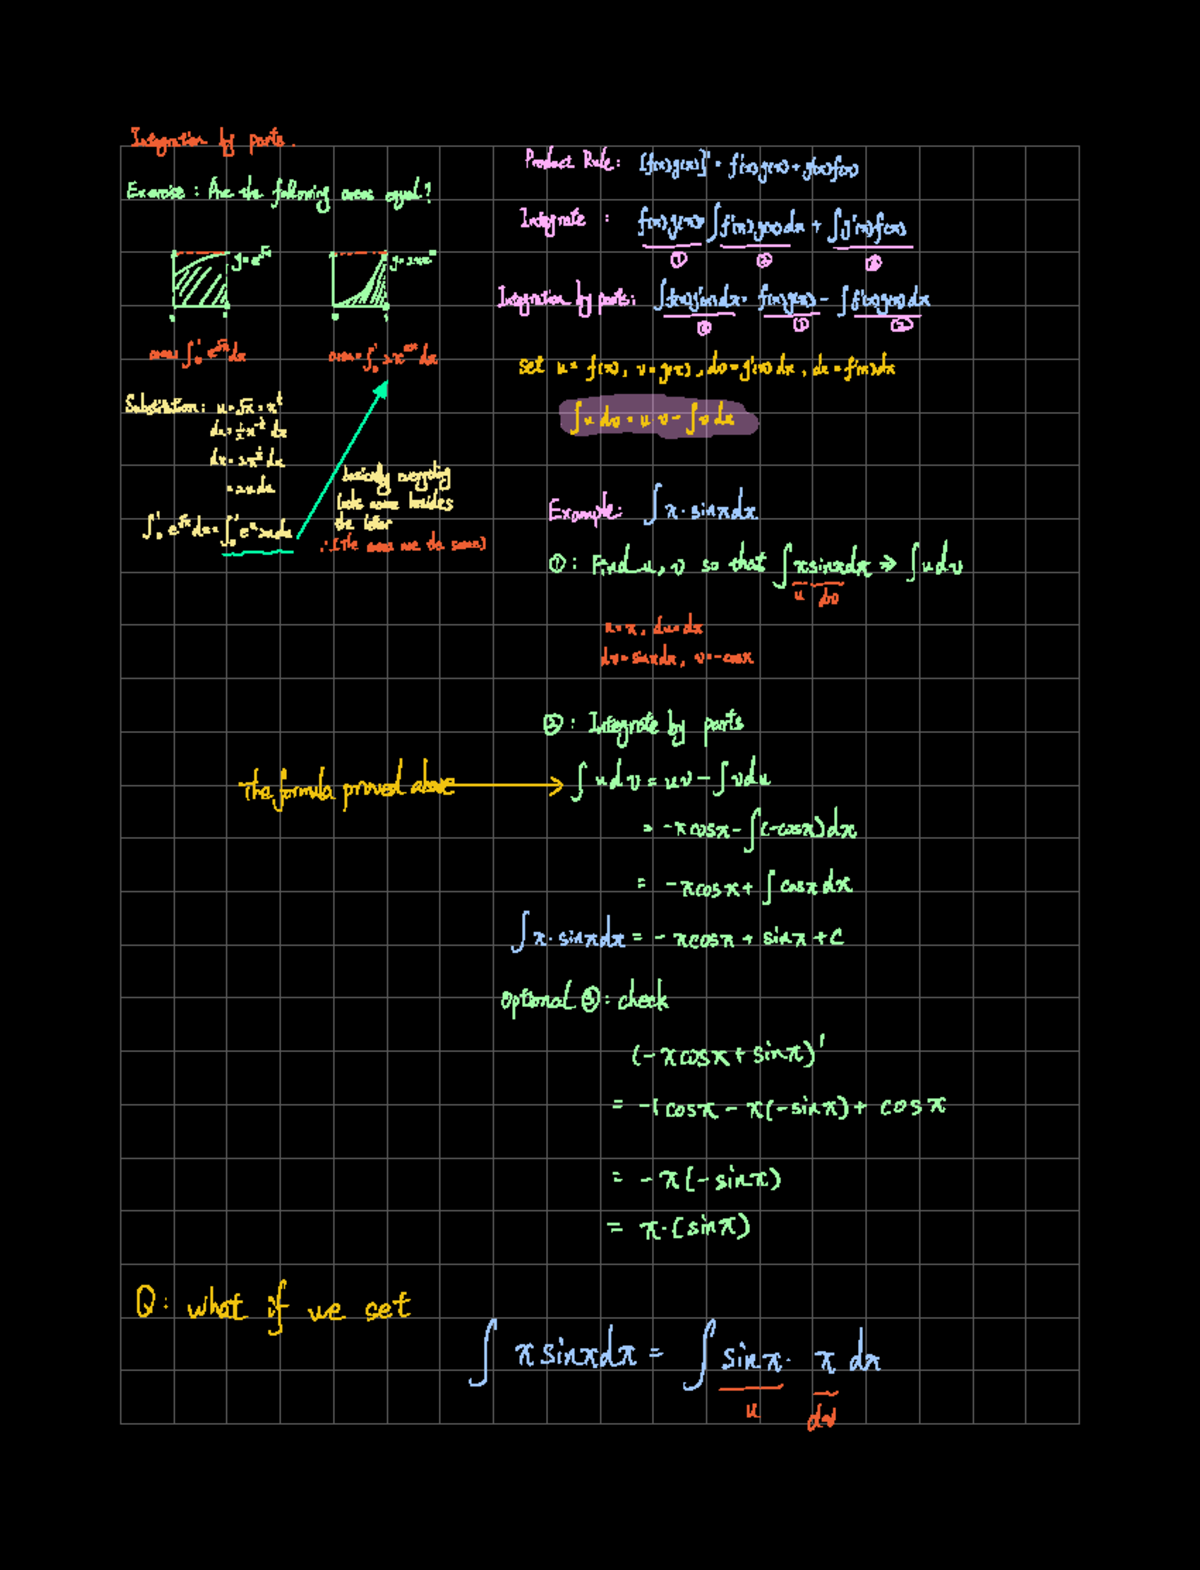 Integration by parts.
Exercise : Are the following areas equal?
y=e^√x
area: ∫₀¹ e^√x dx
area=∫₀¹
Substitution: u=√x = x^½
du=½x^-½ dx
dx=2x^½ du
=2udu
∫₀¹ e^√x dx=∫₀¹ e^u 2udu
basically everything
looks same besides
the letter
∴(The areas are the same)
Product Rule: [f(x)g(x)]' = f'(x)g(x)+g'(x)f(x)
Integrate : f(x)g(x)=∫f'(x)g(x)dx + ∫g'(x)f(x)
① ②
Integration by parts: ∫f(x)g'(x)dx= f(x)g(x) - ∫f'(x)g(x)dx
① ②
set u= f(x), v=g(x), dv=g'(x)dx, du=f'(x)dx
∫u dv = u v - ∫v du
Example: ∫x·sinxdx
①: Find u, v so that ∫xsinxdx ⇒ ∫udv
u dv
u=x, du=dx
dv=sinxdx, v=-cosx
②: Integrate by parts
The formula proved above → ∫udv = uv - ∫vdu
= -xcosx-∫(-cosx)dx
= -xcosx+ ∫cosxdx
∫x·sinxdx = -xcosx + sinx +C
optional ③: check
(-xcosx+ sinx)'
= -1cosx - x(-sinx)+ cosx
= -x(-sinx)
= x·(sinx)
Q: what if we set
∫xsinxdx = ∫sinx· x dx
u dv